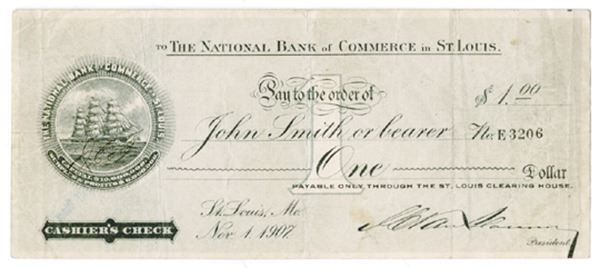 TO THE NATIONAL BANK OF COMMERCE IN ST. LOUIS.
THE NATIONAL BANK OF COMMERCE IN ST. LOUIS
Pay to the order of $ 1.00
John Smith or bearer No. E3206
1
One Dollar
PAYABLE ONLY THROUGH THE ST. LOUIS CLEARING HOUSE.
St. Louis, Mo.
Nov. 1. 1907
CASHIER'S CHECK
President.